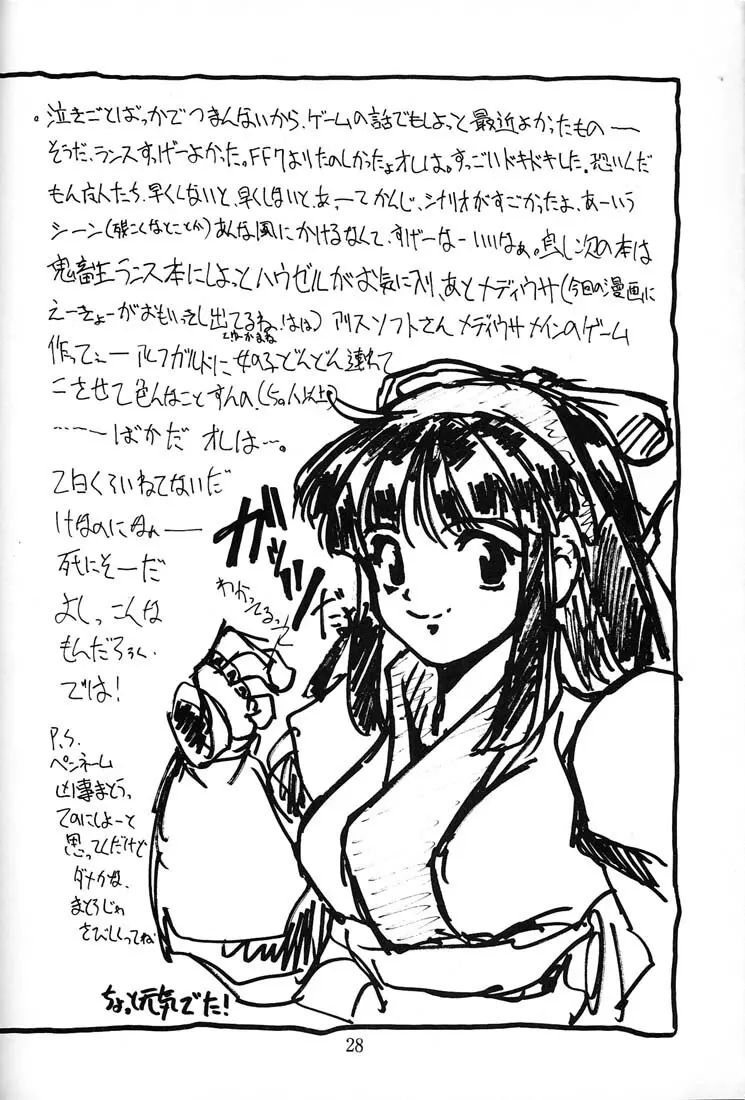 。泣きごとばっかでつまんないから、ゲームの話でもしよっと最近よかったもの——
そうだ、ランスすっげーよかった。FF7よりたのしかったよオレは。すっごいドキドキした。恐いんだ
もん友人たち、早くしないと、早くしないと、あ、ーてかんじ、シナリオがすごかったよ、あーいう
シーン(戦こくなとことか)あんな風にかけるなんて、すげーなーいいなぁ。良し次の本は
鬼畜王ランス本にしよっとハウゼルがお気に入り、あとメディウサ(今回の漫画に
えーきょーがおもいきし出てるね、はは)アリスソフトさんメディウサメインのゲーム
作ってぇーアルフガルドに女の子どんどん連れて
こさせて色んなことすんの。(50人以上)
……——ばかだ オレは…。
2日くらいねてないだ
けなのになぁ——
死にそーだ
よしっこんな
もんだろぅ、
では!
ガッツ
だっ
わかってるってえ
P.S.
ペンネーム
凶事まとう、
てのにしよーと
思ってんだけど
ダメかな、
まとうじゃ
さびしくってね
ちょっと元気でた!
28